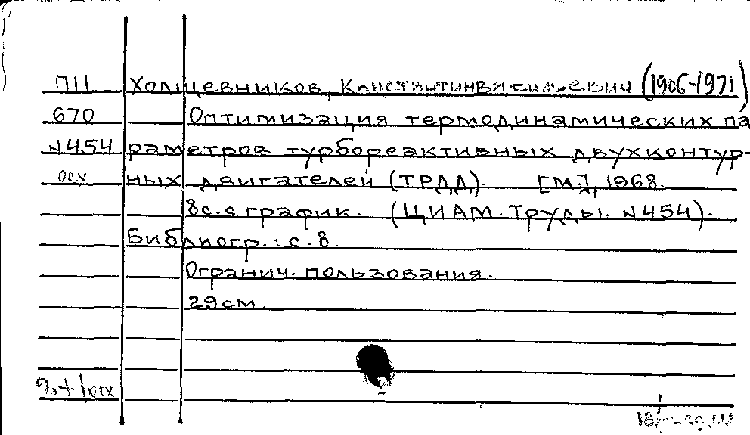 П11 Холщевников, Константин Васильевич (1906-1971)
670 Оптимизация термодинамических па
№454 раметров турбореактивных двухконтур-
осх ных двигателей (ТРДД). [М.], 1968.
8с. с график. (ЦИАМ. Труды. №454).
Библиогр.: с. 8.
Огранич. пользования.
29см